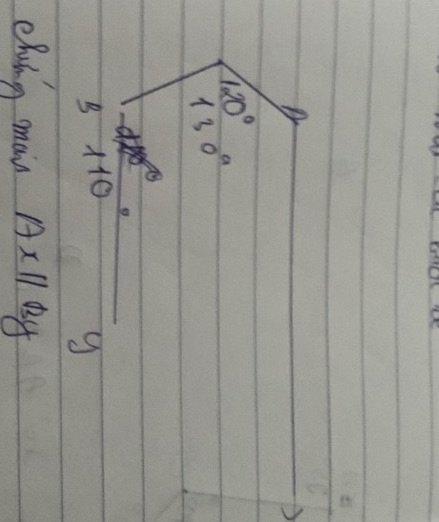 A
120°
130°
B
110°
y
chứng minh Ax // By